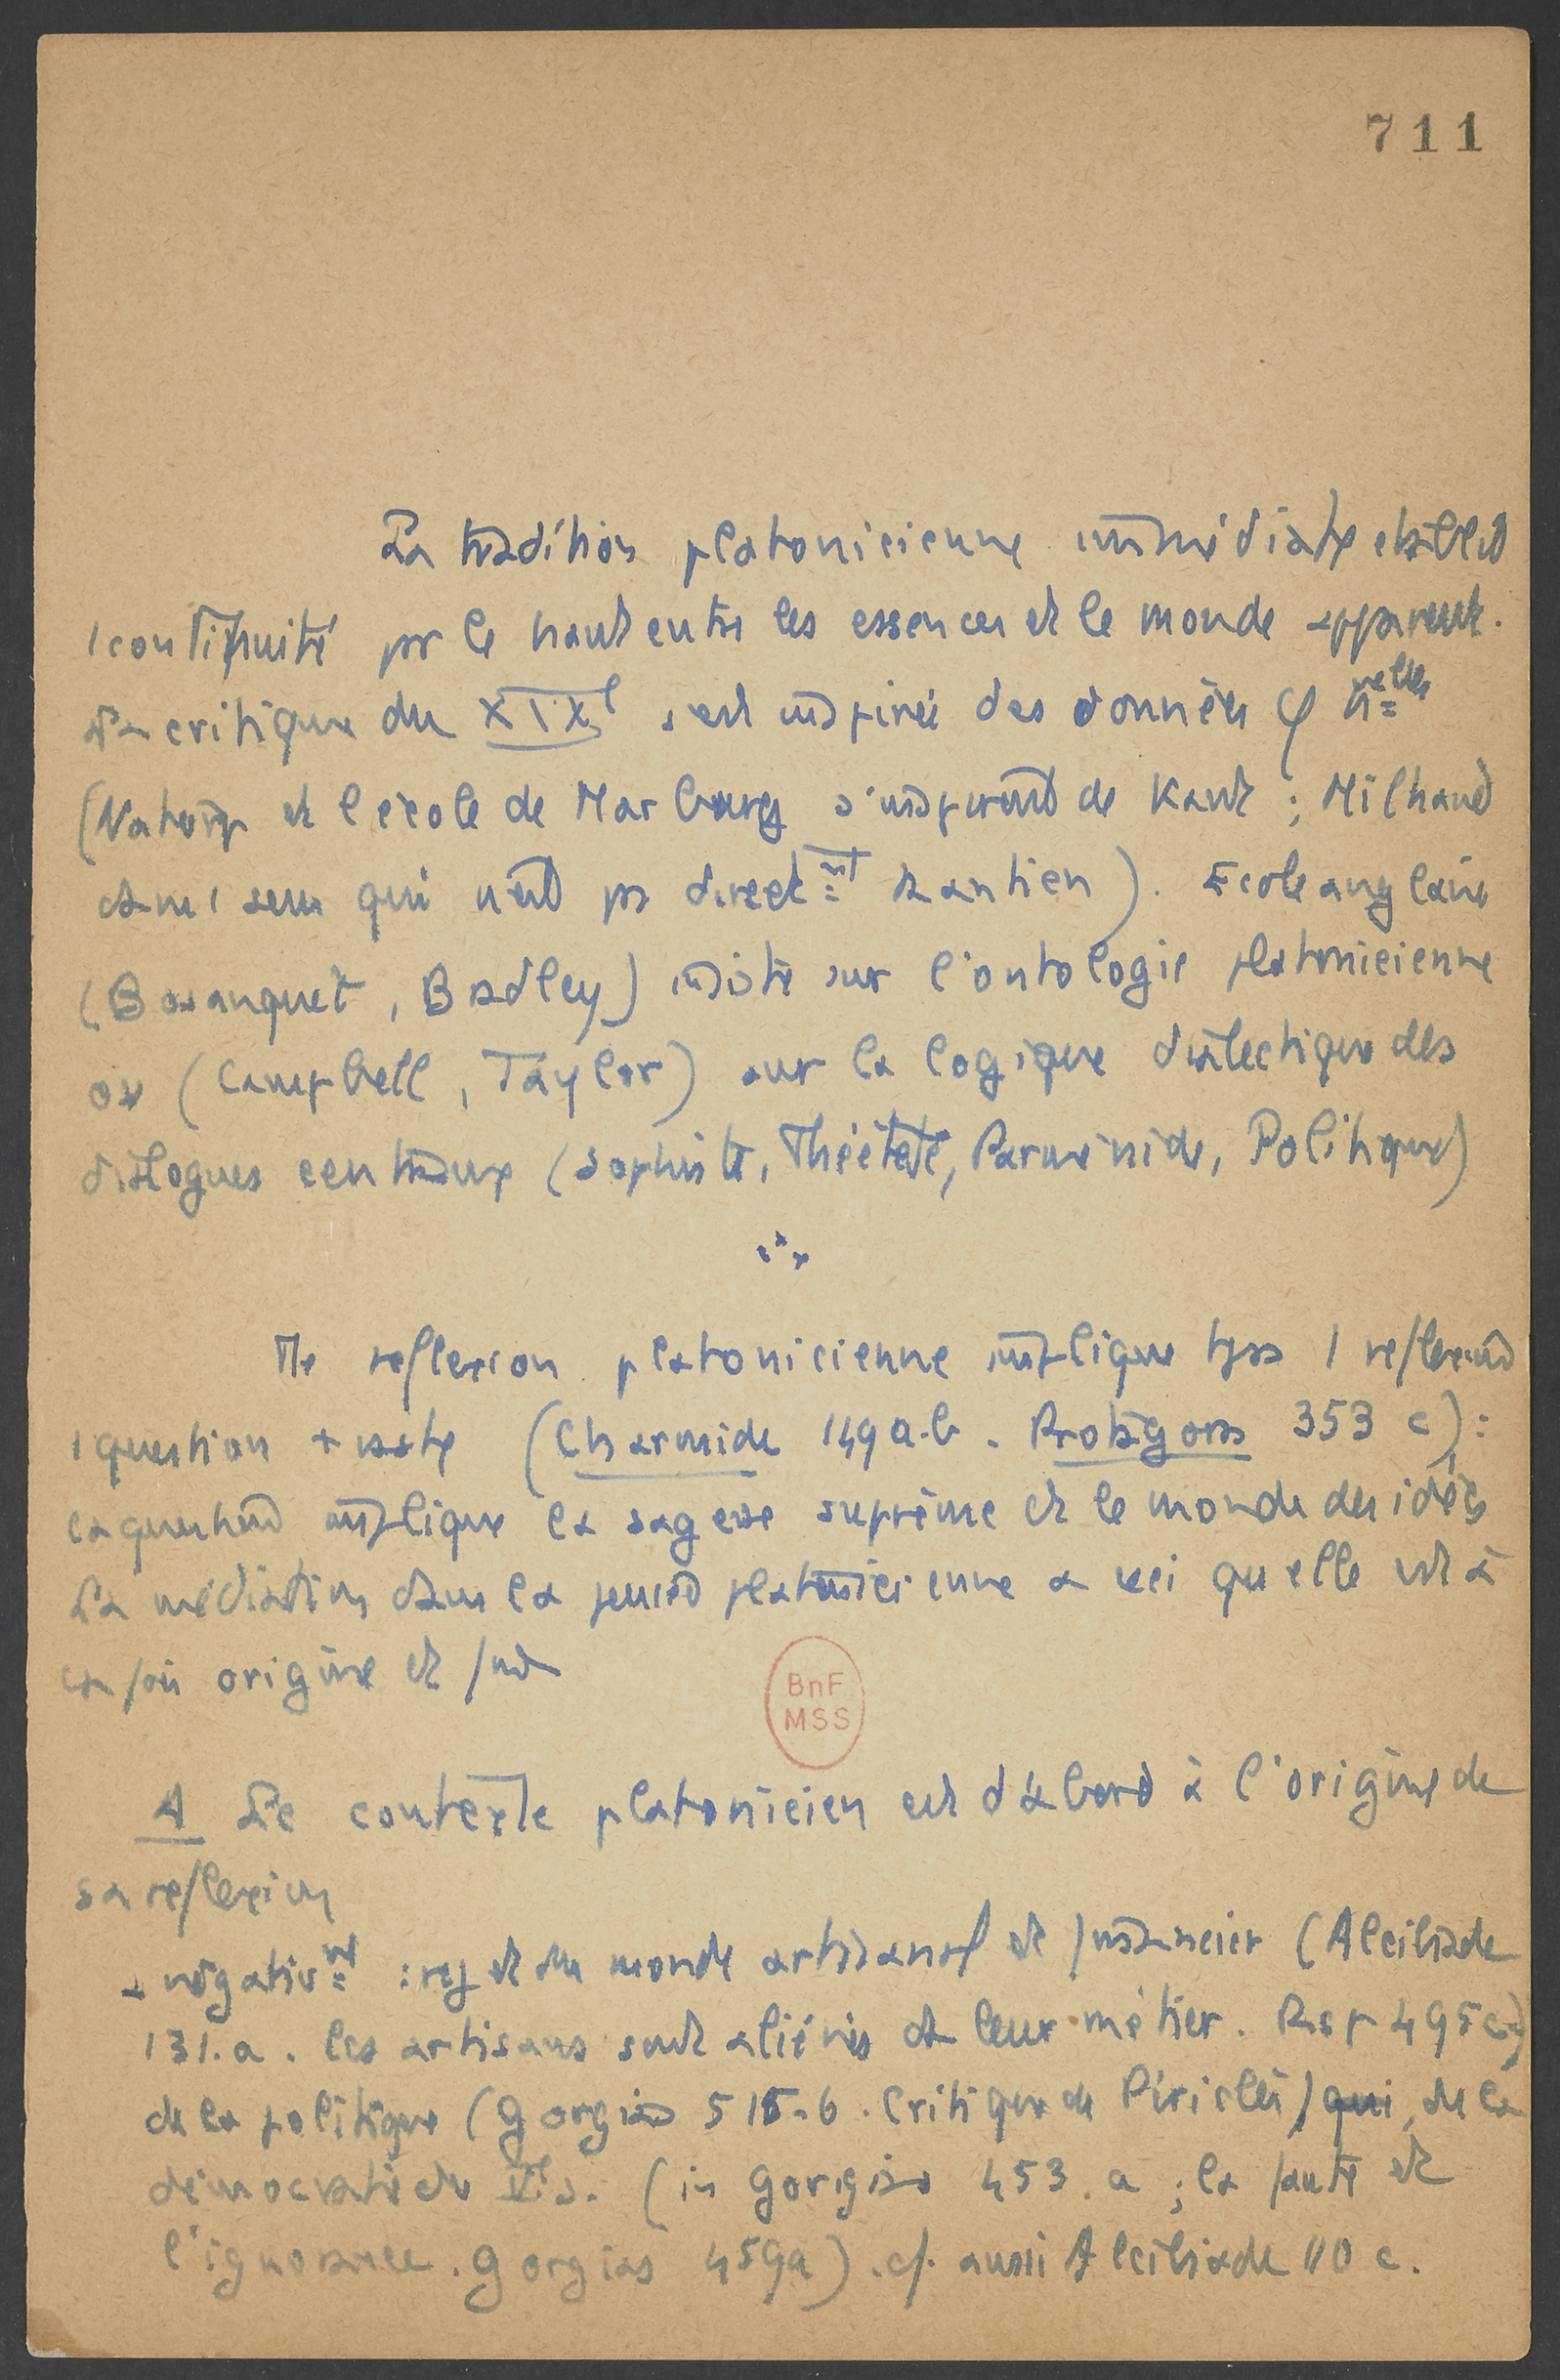 711
La tradition platonicienne immédiate établit
1 continuité par le haut entre les essences et le monde apparent.
La critique du XIXe s'est inspirée des données φ nelles
(Natorp et l'école de Marbourg s'inspirent de Kant ; Milhaud
dans 1 sens qui n'est pas direct mt kantien). Ecole anglaise
(Bosanquet, Bradley) insiste sur l'ontologie platonicienne
ou (Campbell, Taylor) sur la logique dialectique des
dialogues centraux (Sophiste, Théétète, Parménide, Politique)
Tte reflexion platonicienne implique tjrs 1 reflexion
1 question + vaste (Charmide 149 a.b. Protagoras 353 c) :
la question implique la sagesse suprême et le monde des idées
La médiation dans la pensée platonicienne a ceci qu'elle est à
la fois origine et fin
A Le contexte platonicien est d'abord à l'origine de
sa reflexion
negativ mt : rejet du monde artisanal et financier (Alcibiade
131.a. les artisans sont aliénés de leur métier. Rep 495 c)
de la politique (Gorgias 515.b. Critique de Périclès) qui, de la
démocratie du Ve s. (in Gorgias 453.a ; la faute est
l'ignorance. Gorgias 459a). cf. aussi Alcibiade 110 c.
BnF
MSS